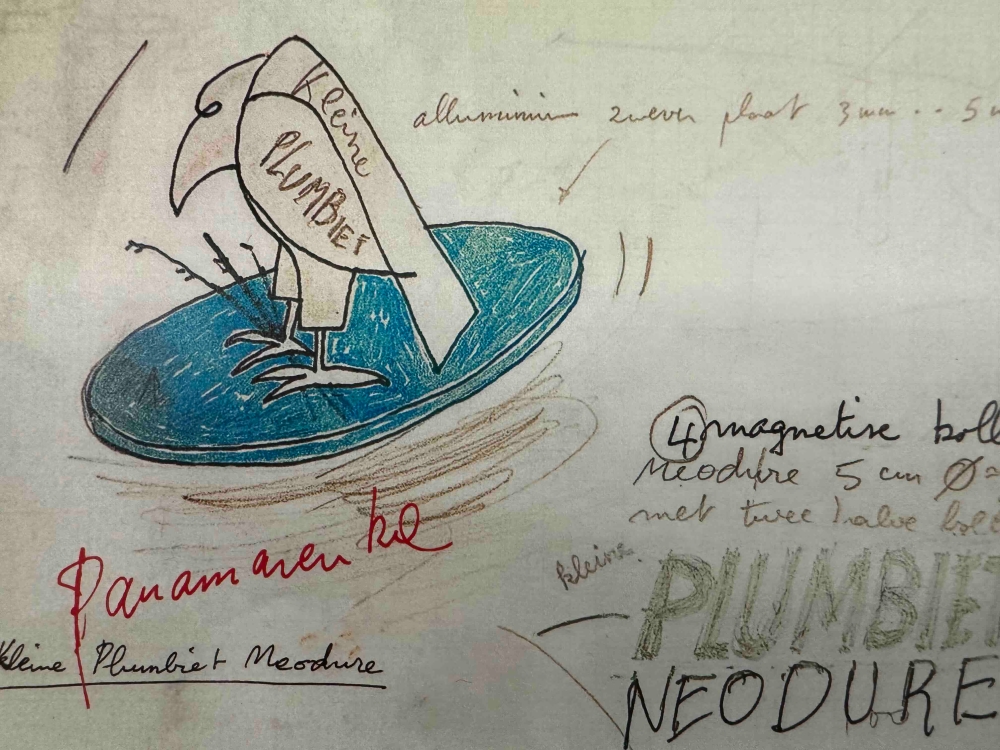 Kleine
PLUMBIET
alluminium zweven plaat 3 mm .. 5
4 magnetise boll
Neodure 5 cm Ø=
met twee halve boll
kleine
PLUMBIET
NEODURE
Panamarenko
Kleine Plumbiet Neodure